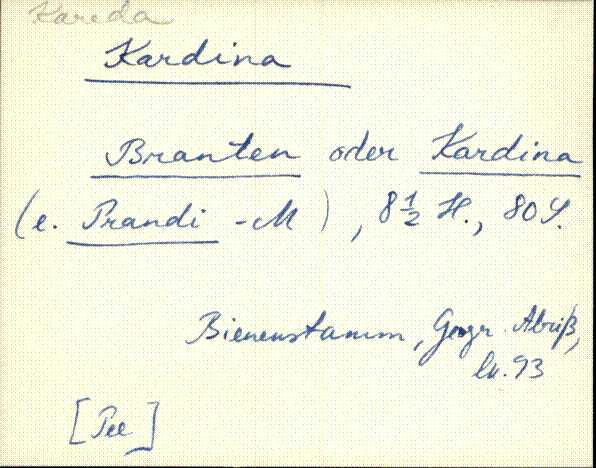 Kareda
Kardina
Branten oder Kardina
(e. Prandi -M), 8 1/2 H., 80 S.
Bienenstamm, Geogr. Abriß,
lk. 93
[Pee]